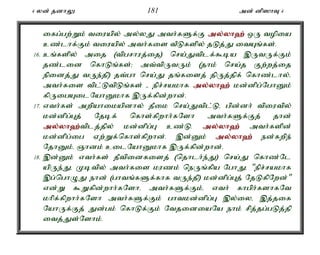 4 லன் தனாலு 181 அன் னிஸாவு 4
கைப்பற்றும் வரையில் அல்லது அவர்களுக்கு அல்லாஹ் ஒரு வழியை
உண்டாக்கும் வரையில் அவர்களை வீடுகளில் தடுத்து வையுங்கள்.
16. உங்களில் அதை (விபசாரத்தை) செய்துவிடக்கூடிய இருவருக்கும்
தண்டனை கொடுங்கள்; அவ்விருவரும் (தாம் செய்த குற்றத்தை
நினைத்து வருந்தி) தவ்பா செய்து தங்களைத் திருத்திக் கொண்டால்,
அவர்களை விட்டுவிடுங்கள் , நிச்சயமாக அல்லாஹ் மன்னிப்போனும்
கிருபையுடையோனுமாக இருக்கின்றான்.
17. எவர்கள் அறியாமையினால் தீமை செய்துவிட்டு, பின்னர் விரைவில்
மன்னிப்புத் தேடிக் கொள்கிறார்களோ அவர்களுக்குத் தான்
அல்லாஹ்விடத்தில் மன்னிப்பு உண்டு. அல்லாஹ் அவர்களின்
மன்னிப்பை ஏற்றுக்கொள்கிறான். இன்னும் அல்லாஹ் நன்கறிந்
தோனும், ஞானம் உடையோனுமாக இருக்கின்றான்.
18. இன்னும் எவர்கள் தீவினைகளைத் (தொடர்ந்து) செய்து கொண்டே
யிருந்து, முடிவில் அவர்களை மரணம் நெருங்கிய போது, "நிச்சயமாக
இப்பொழுது நான் (பாவங்களுக்காக வருந்தி) மன்னிப்புத் தேடுகிறேன்"
என்று கூறுகின்றார்களோ, அவர்களுக்கும், எவர் காபிர்களாகவே
மரிக்கிறார்களோ அவர்களுக்கும் பாவமன்னிப்பு இல்லை, இத்தகை
யோருக்குத் துன்பம் கொடுக்கும் வேதனையையே நாம் சித்தப்படுத்தி
வைத்துள்ளோம்.